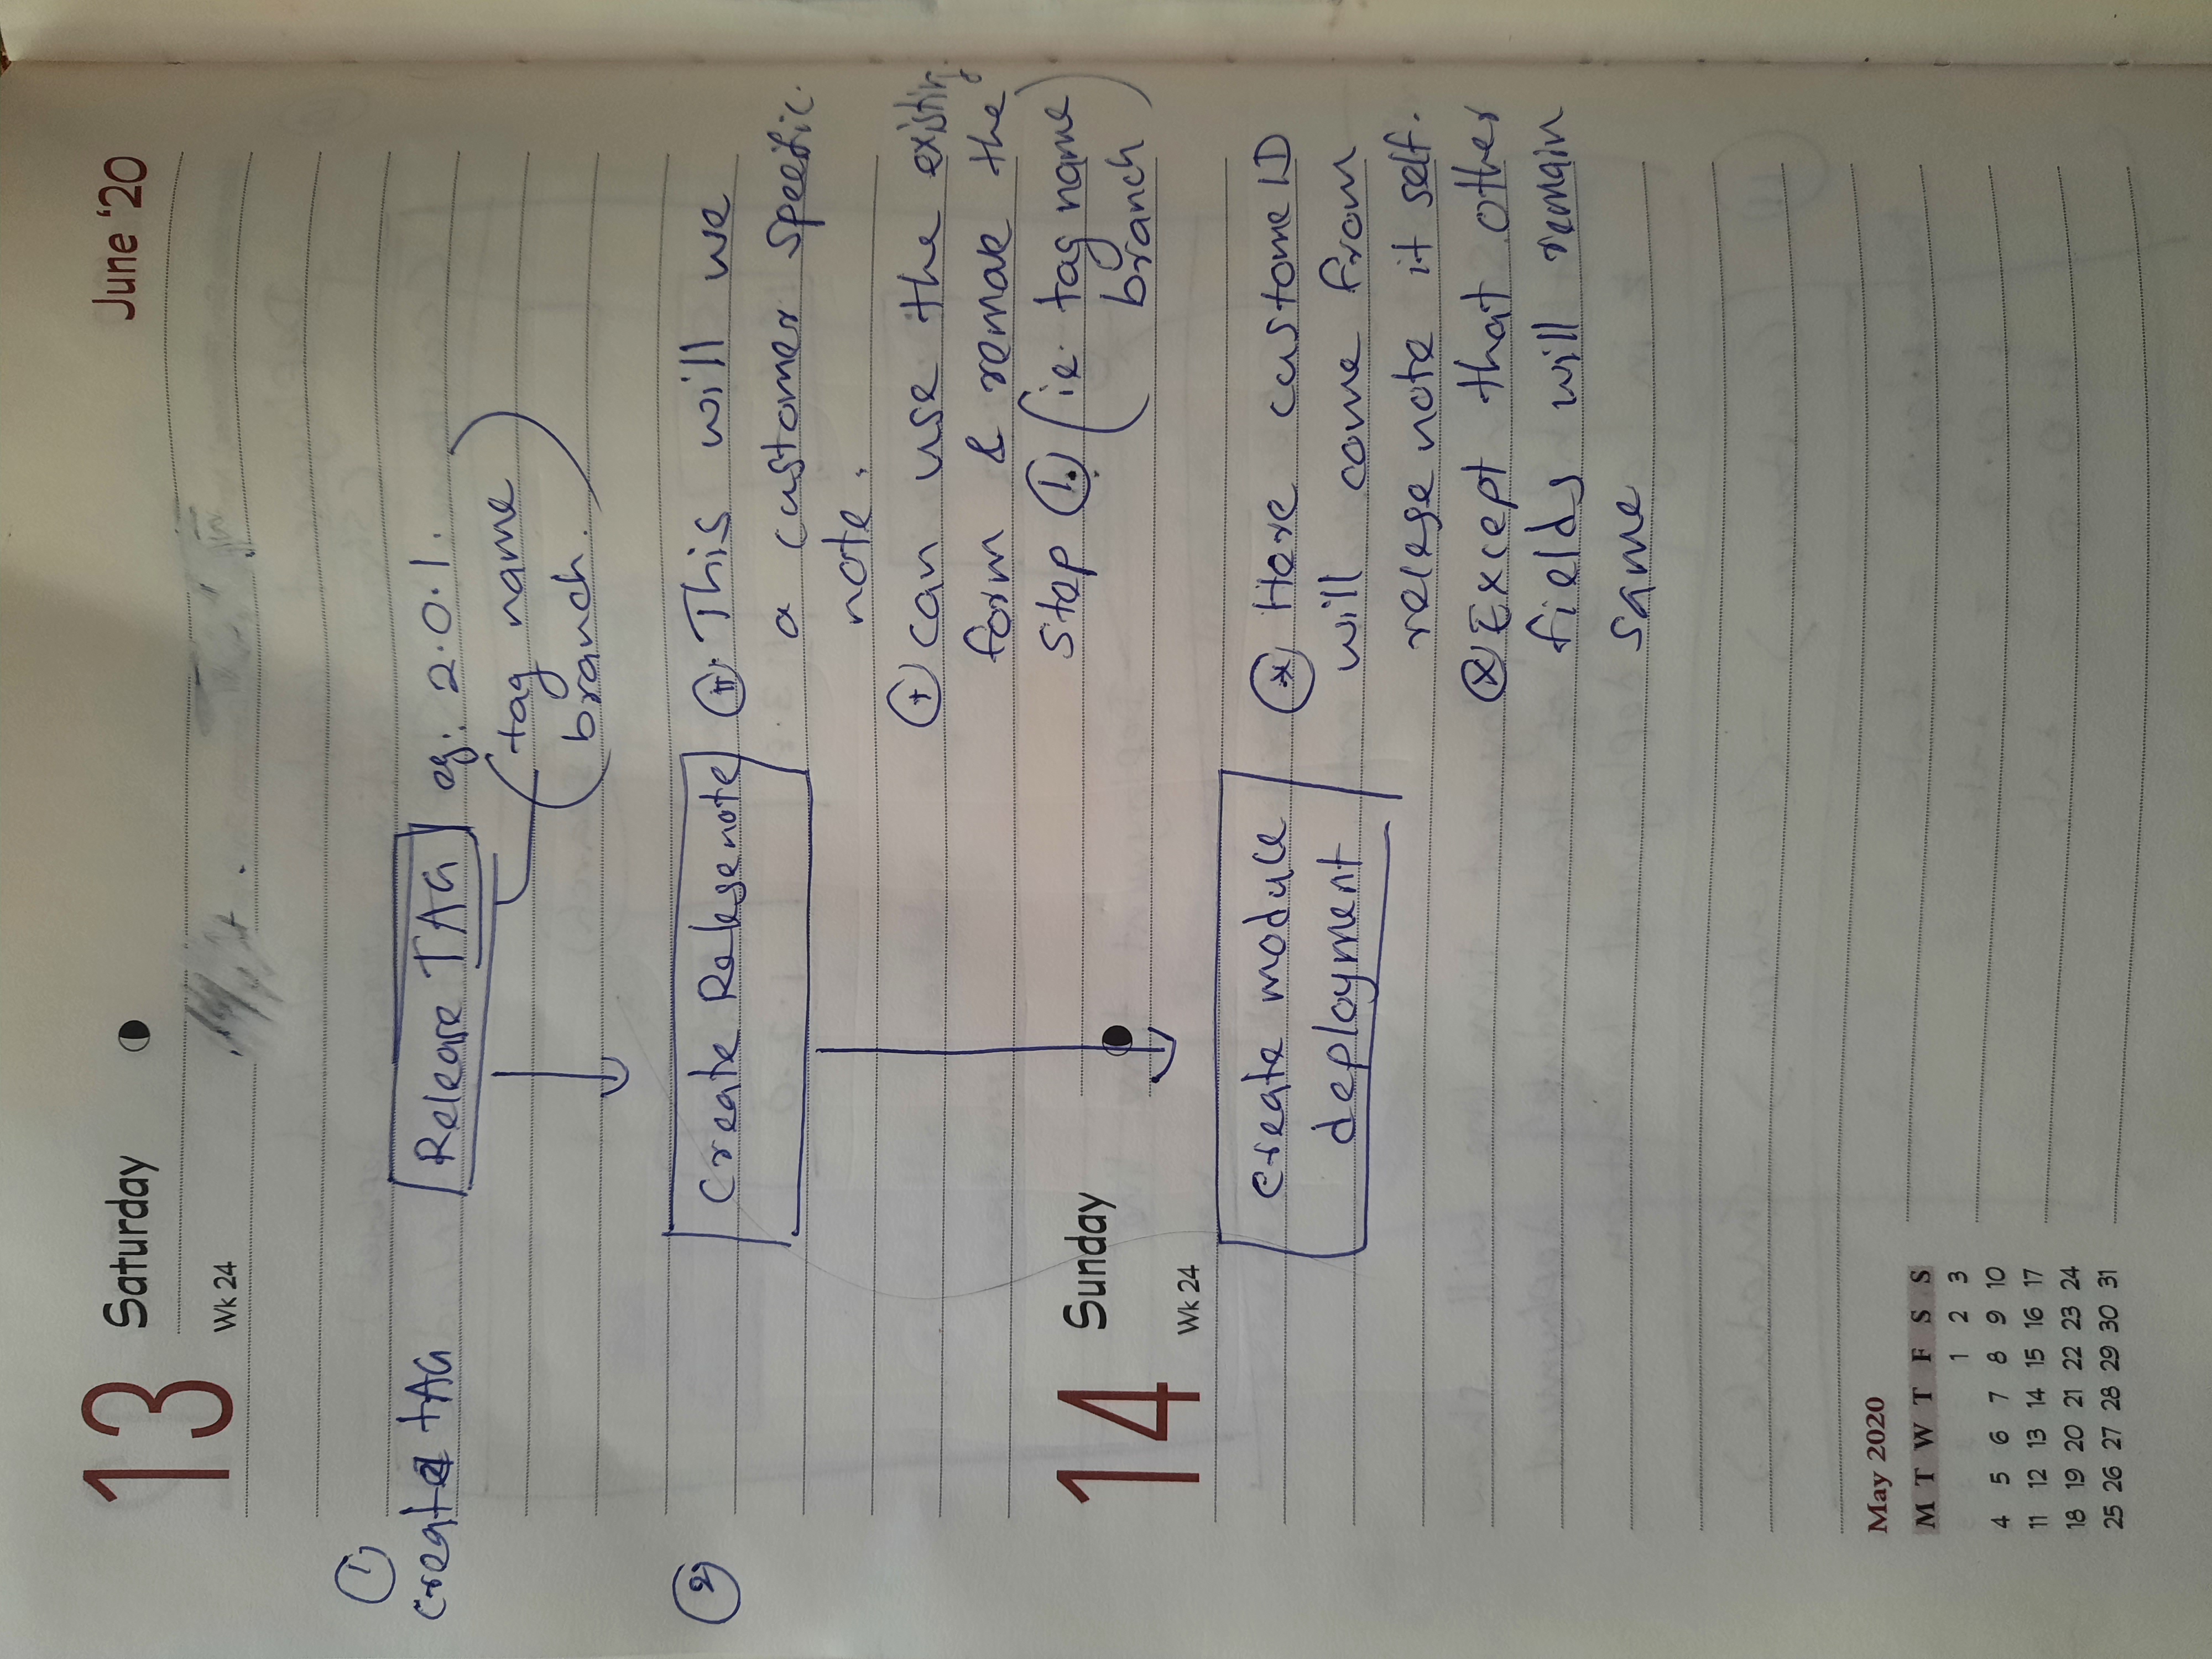 13 Saturday June '20
Wk 24
①
create tAG Release TAG eg: 2.0.1.
(tag name
branch.)
② Create Relesenote This will we
a customer speific.
note.
can use the existing
form & remove the
Step ①. (ie. tag name
branch)
14 Sunday
Wk 24
create module Here custome ID
deployment will come from
relese note it self.
Except that other
fields will remain
same
May 2020
M T W T F S S
1 2 3
4 5 6 7 8 9 10
11 12 13 14 15 16 17
18 19 20 21 22 23 24
25 26 27 28 29 30 31